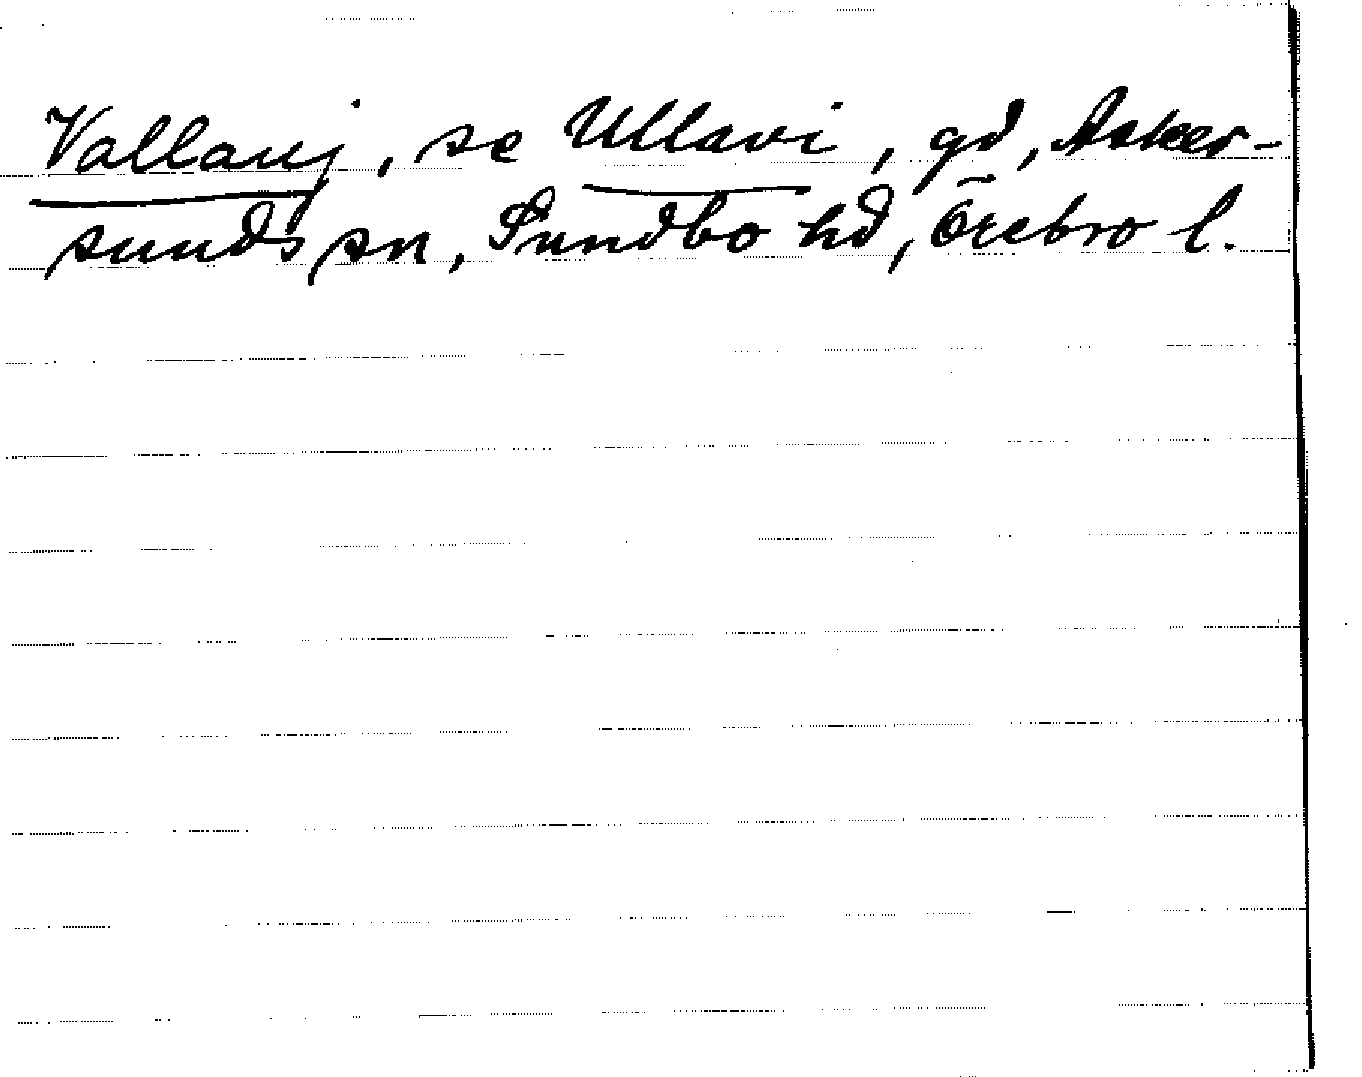 Vallavj, se Ullavi, gd, Asker-
sunds sn, Sundbo hd, Örebro l.